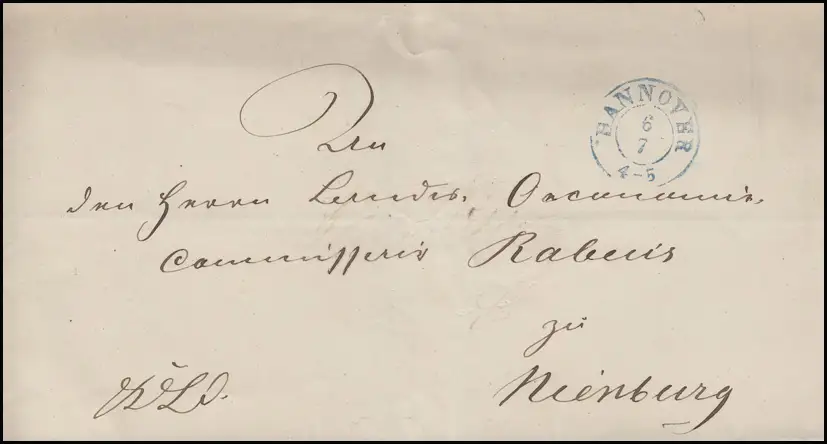 HANNOVER
6
7
4-5
An
den Herrn Landes. Oeconomie.
Commissair Rabens
zu
Nienburg